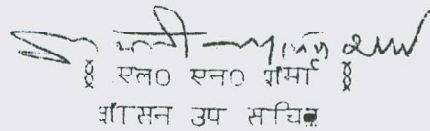 एल0 एन0 शर्मा
शासन उप सचिव